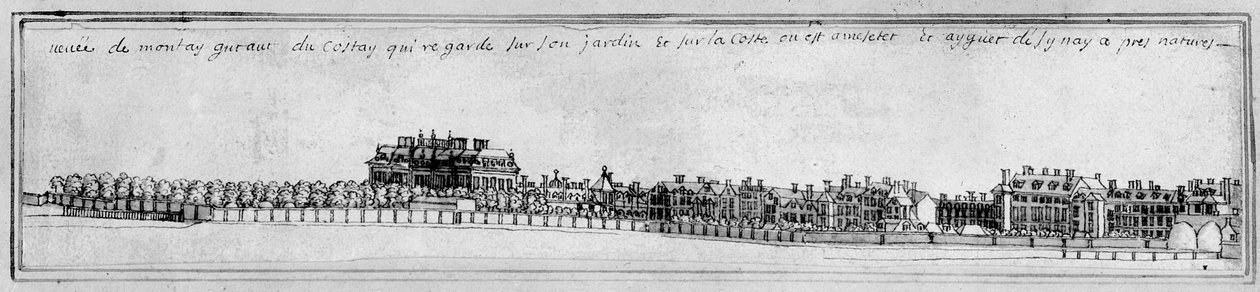 veuëe de montay gut aut du Costay qui re garde sur son jardin Et sur la Coste ou est ameletet Et ayguet désynay a pres natures